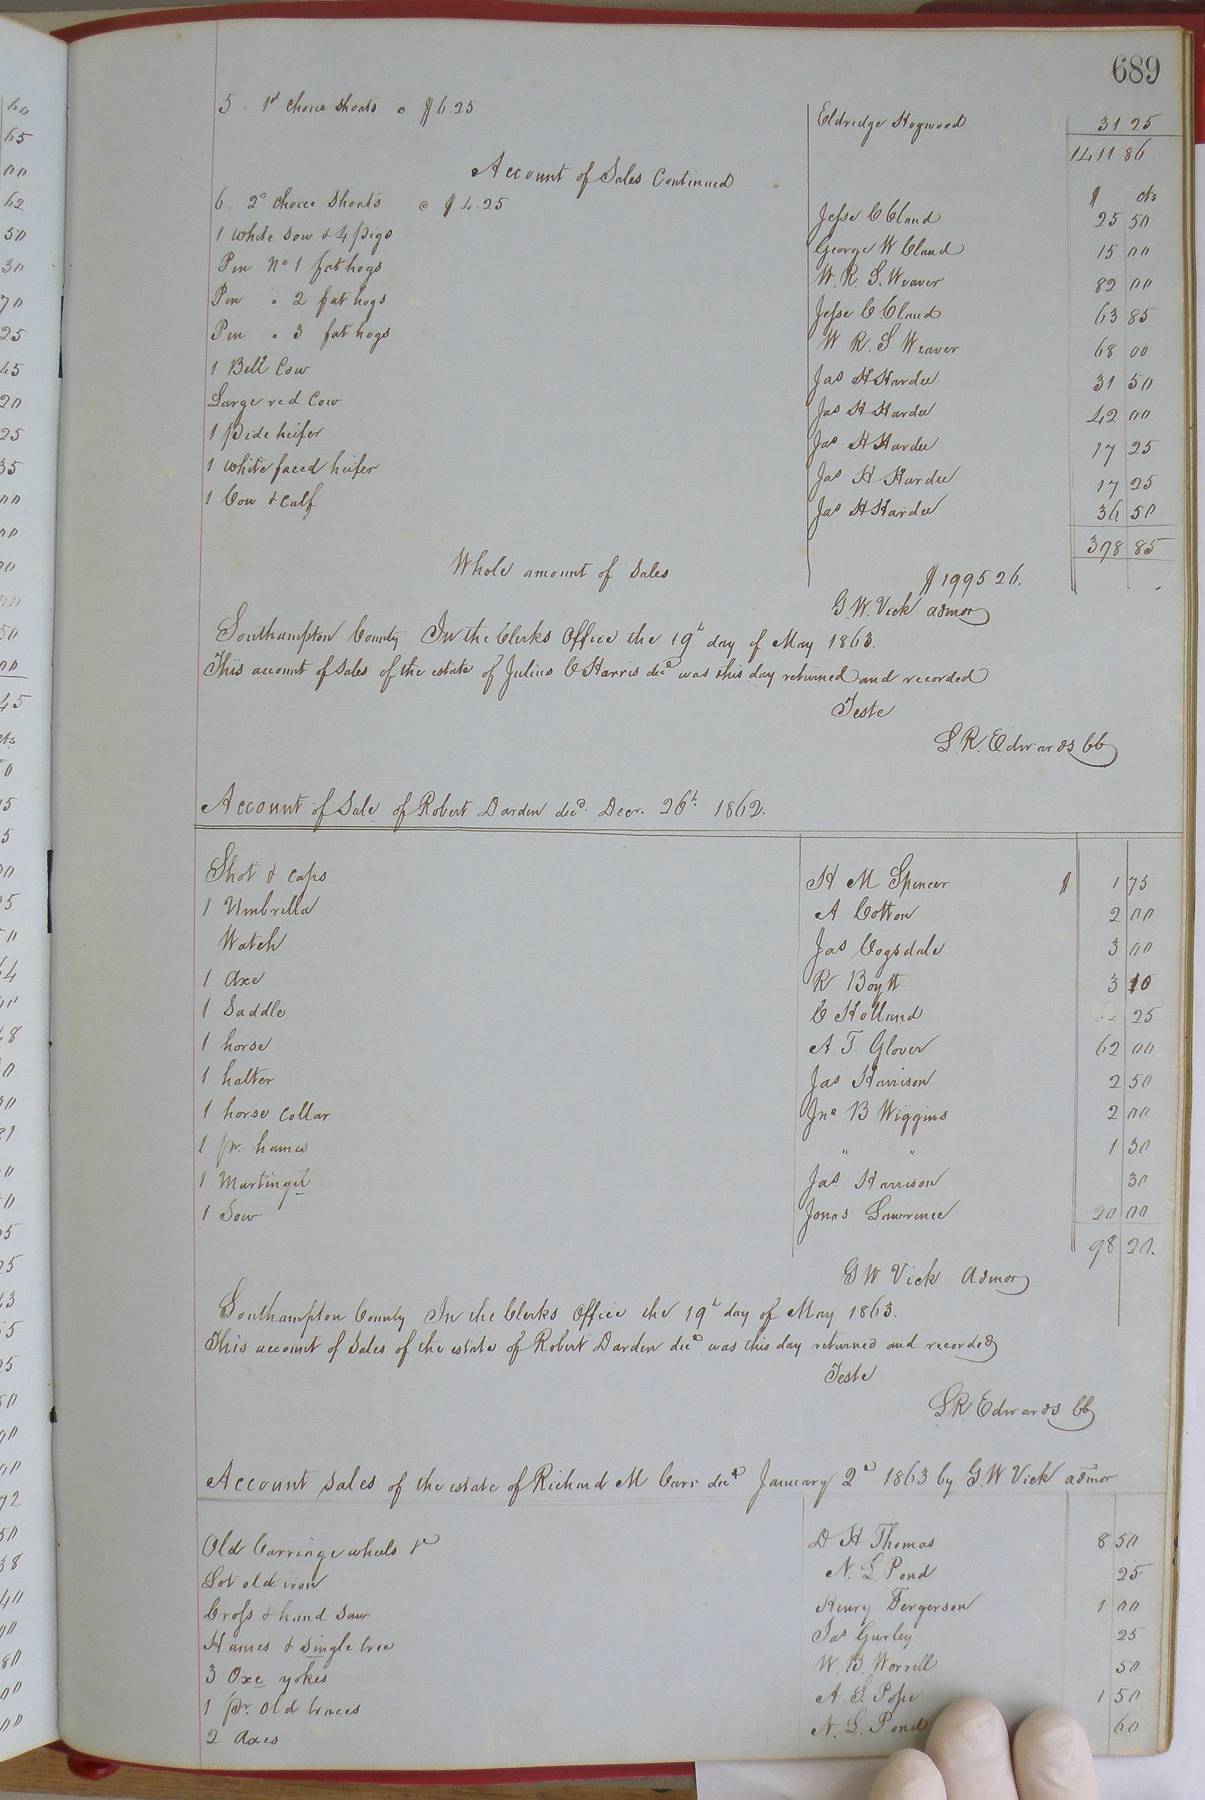 689
5 - 1st choice Shoats @ $6.25 Eldridge Hogwood 31 25
1411 86
Account of Sales Continued
$ cts
6 - 2d choice Shoats @ $4.25 Jesse C Claud 25 50
1 white Sow & 4 pigs George W Claud 15 00
Pen No 1 fat hogs W. R. S. Weaver 82 00
Pen " 2 fat hogs Jesse C Claud 63 85
Pen " 3 fat hogs W R. S Weaver 68 00
1 Bell Cow Jas H Hardee 31 50
Large red Cow Jas H Hardee 42 00
1 pide heifer Jas H Hardee 17 25
1 white faced heifer Jas H Hardee 17 25
1 Cow & Calf Jas H Hardee 36 50
398 85
Whole amount of Sales $1995 26.
G. W. Vick admor
Southampton County In the Clerks Office the 19th day of May 1863.
This account of Sales of the estate of Julius C Harris decd was this day returned and recorded
Teste
L. R. Edwards CC
Account of Sale of Robert Darden decd. Decr. 26th 1862.
Shot & caps H M Spencer $ 1 75
1 Umbrella A Cotton 2 00
Watch Jas Cogsdale 3 00
1 Axe R Boytt 3 10
1 Saddle C Holland 25
1 horse A. T. Glover 62 00
1 halter Jas Harrison 2 50
1 horse collar Jno B Wiggins 2 00
1 pr. hames " " 1 30
1 Martingil Jas. Harrison 30
1 Sow Jonas Lawrence 20 00
98 20.
G W Vick Admor
Southampton County In the Clerks Office the 19th day of May 1863.
This account of Sales of the estate of Robert Darden decd was this day returned and recorded
Teste
L R Edwards CC
Account sales of the estate of Richard M Carr decd January 2d 1863 by G. W Vick admor
Old Carriage wheels &c D H Thomas 8 50
Lot old iron N. L. Pond 25
Cross & hand Saw Henry Fergerson 1 00
Hames & single tree Jas Gurley 25
3 Oxe yokes W. B. Worrell 50
1 pr. Old traces A. S. Pope 1 50
2 Axes N. L. Pond 60